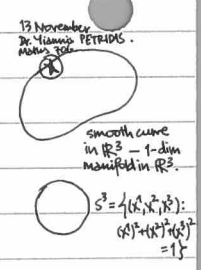 13 November
Dr. Yiannis PETRIDIS.
Maths 706
smooth curve
in ℝ³ – 1-dim
manifold in ℝ³.
S³ = {(x¹, x², x³):
(x¹)²+(x²)²+(x³)²
=1}